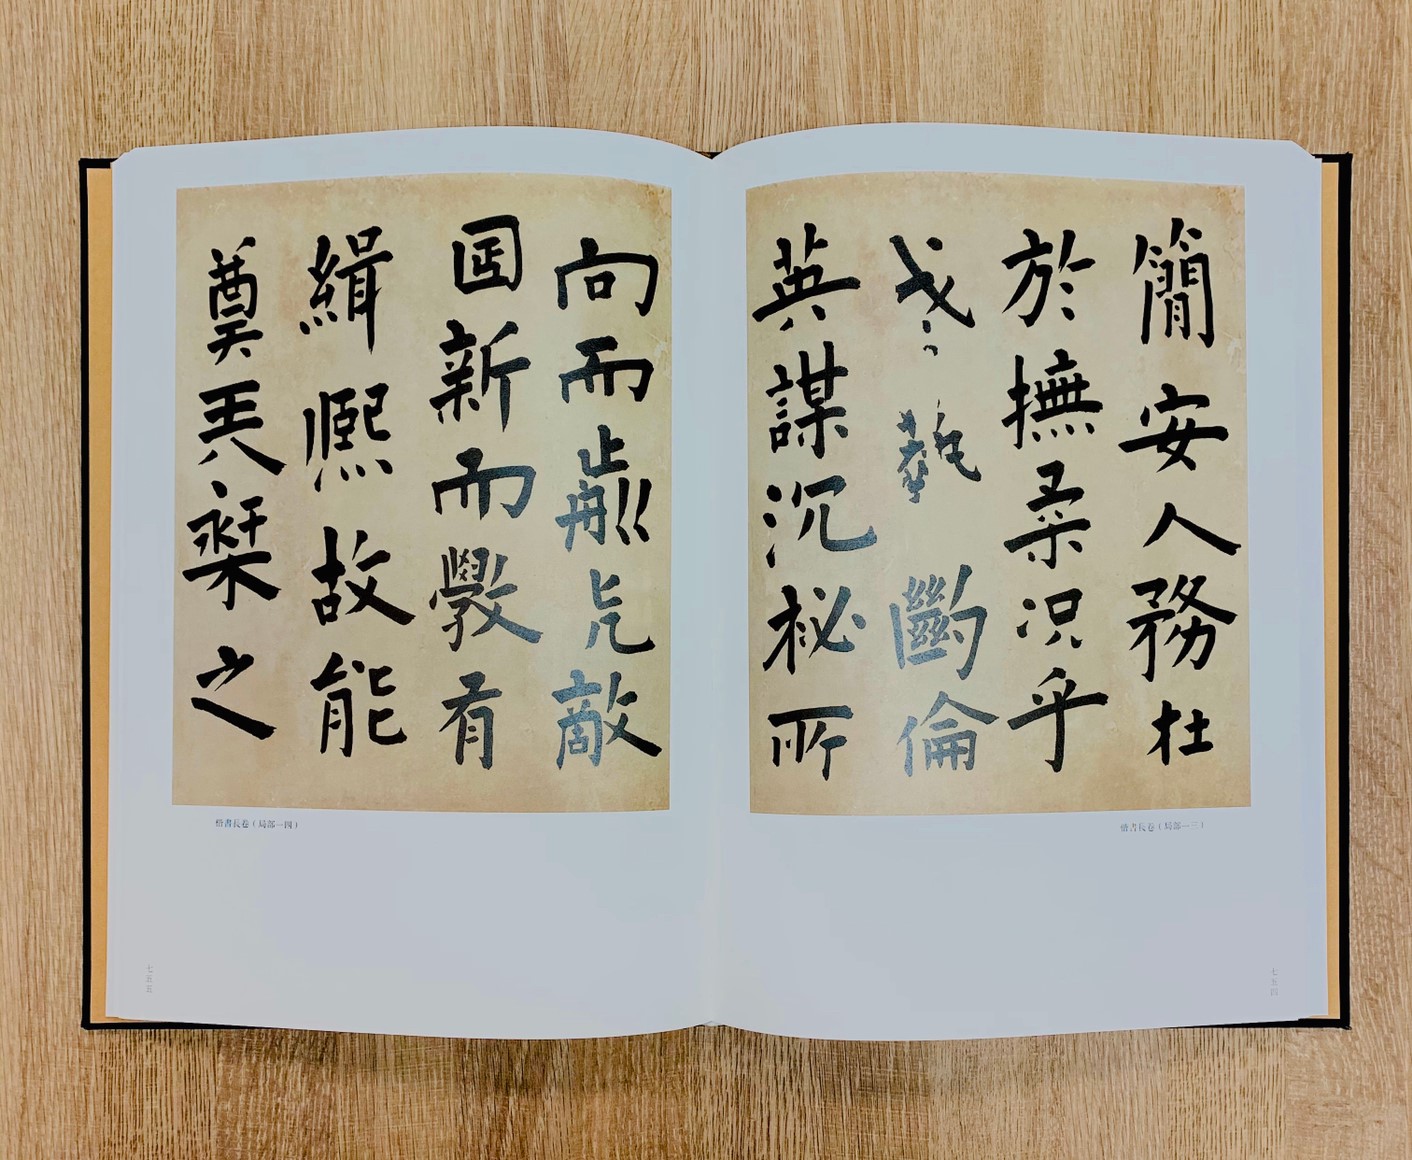 簡安人務杜
於撫柔況乎
藝斷倫
英謀沉祕所
楷書長卷（局部一三）
七五四
向而敵
新而斅有
緝熙故能
奠之
楷書長卷（局部一四）
七五五